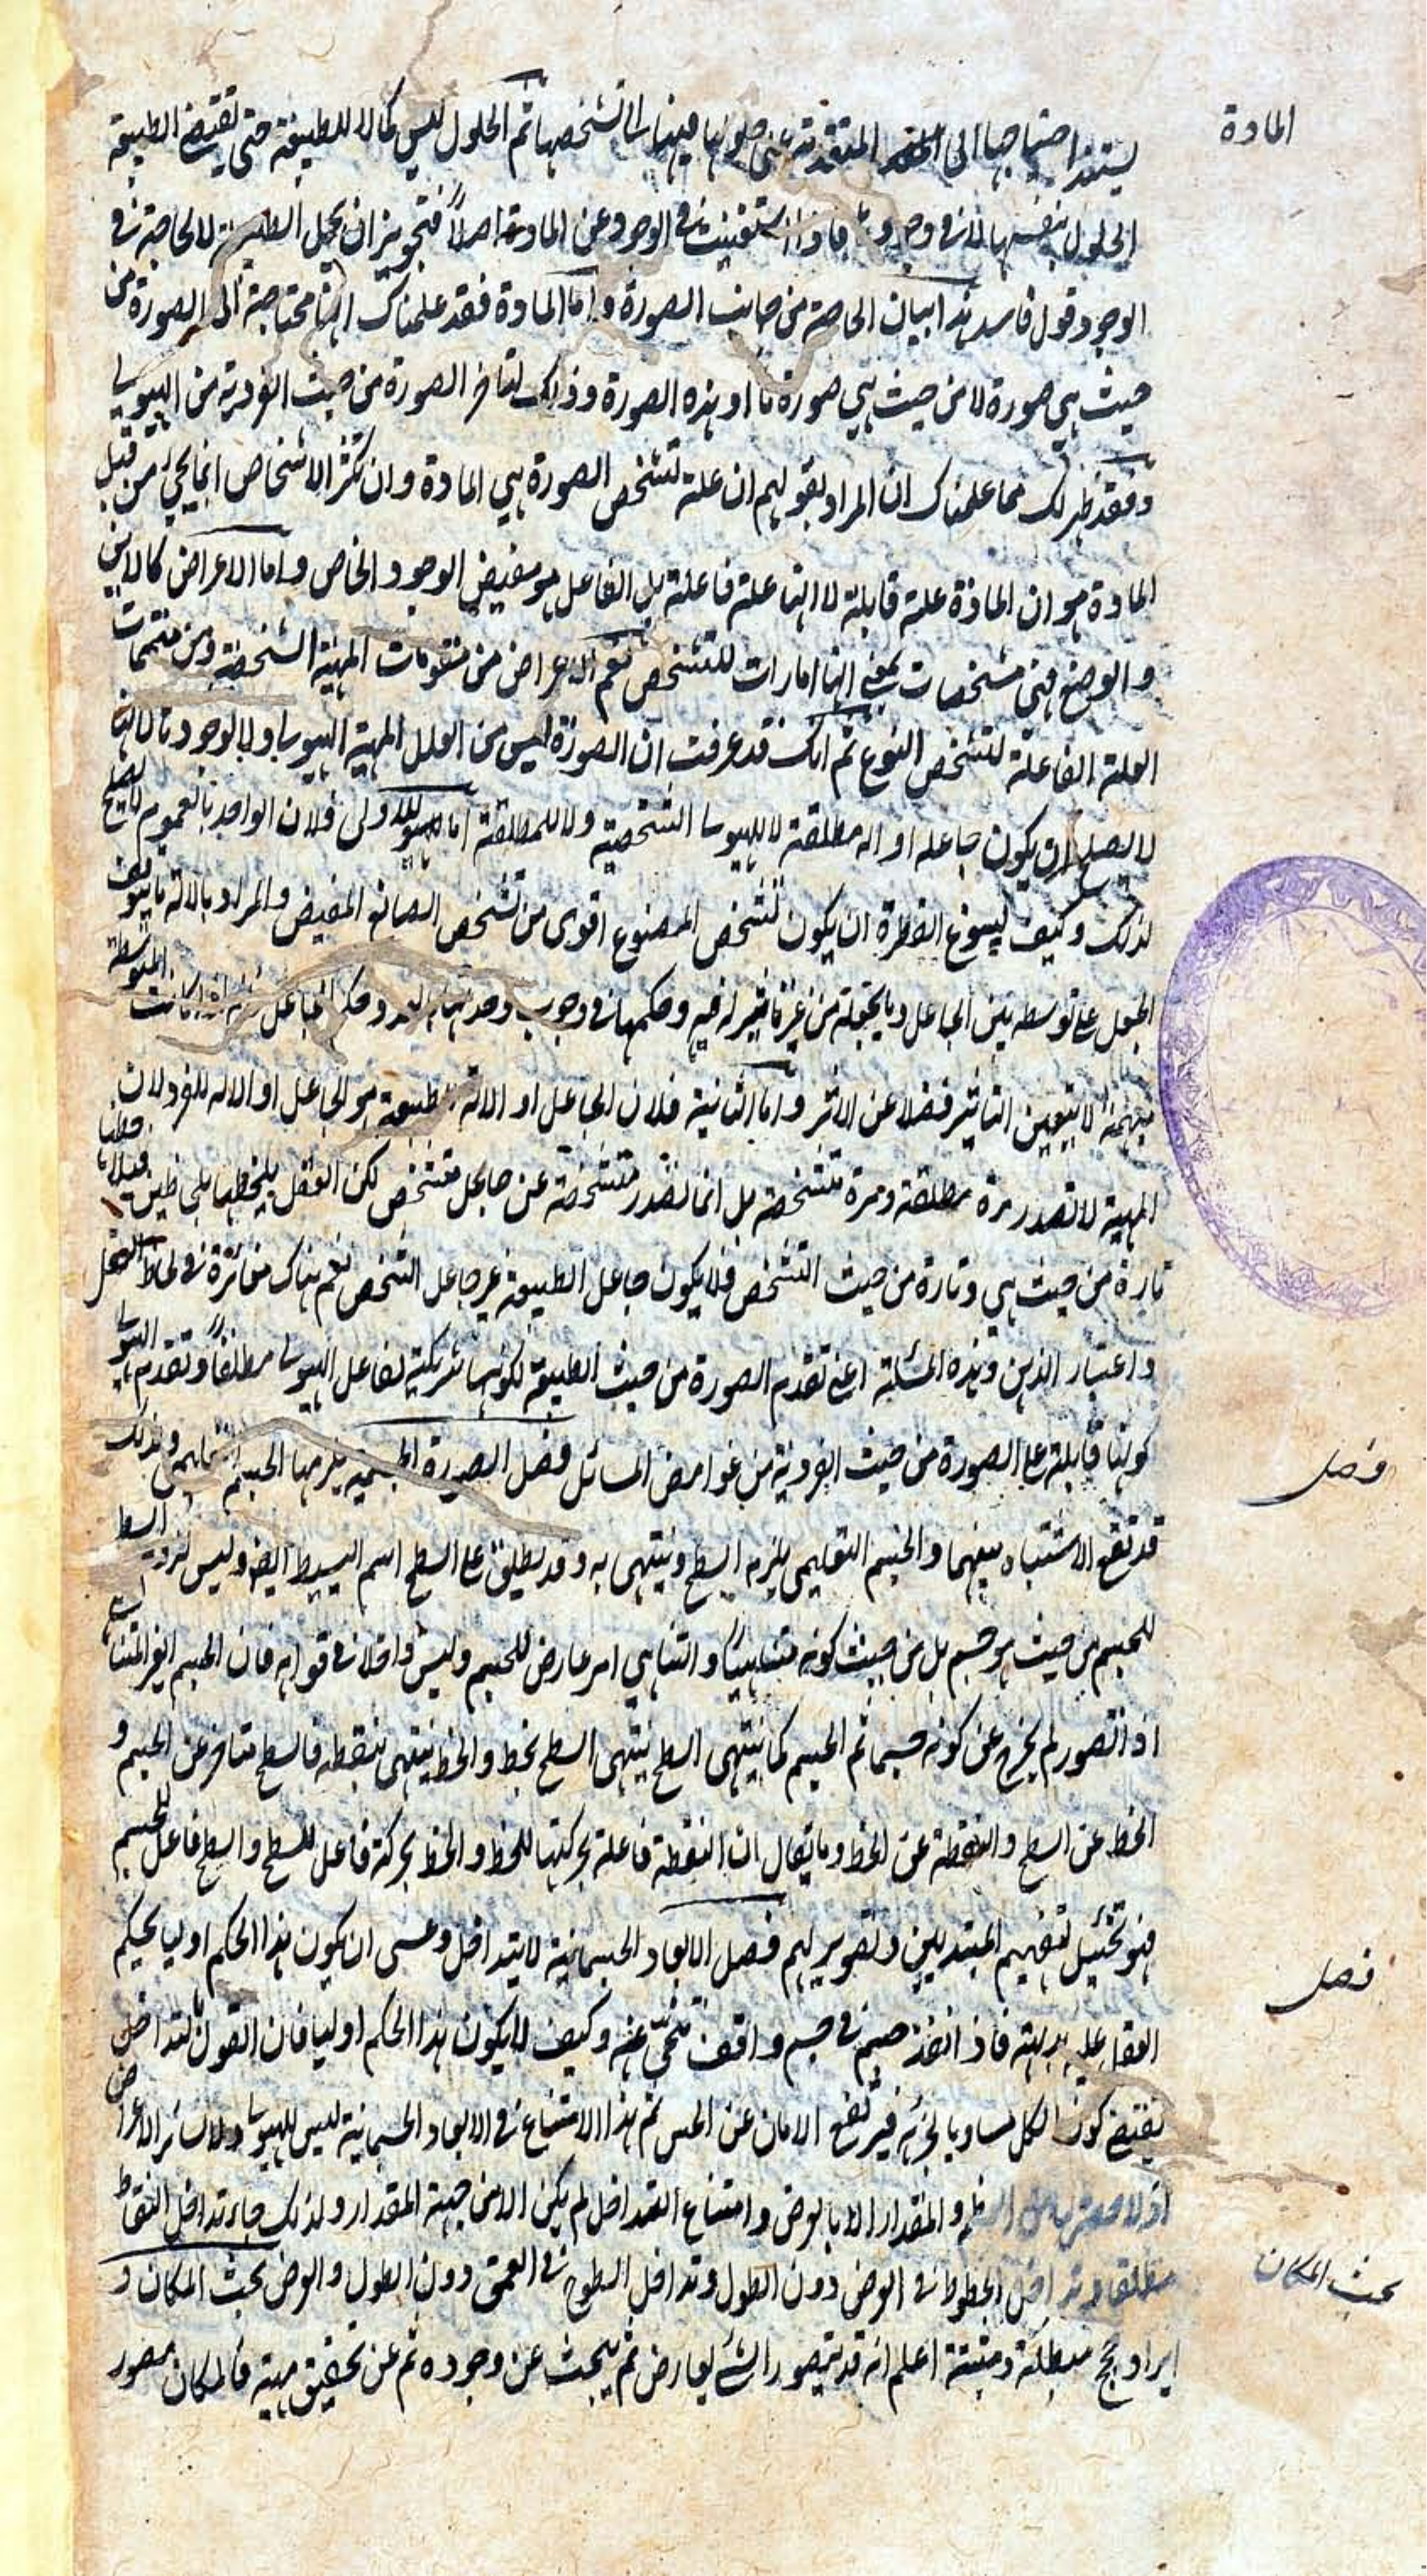 المادة
يستند احتياجها الى المتقدمة عنى حلولها فيها الى تشخصها ثم الحلول ليس كمالا للطبيعة حتى تقتضي الطبيعة
الحلول بنفسها لا في وجودها فاذا استغنيت في الوجود عن المادة اصلاً فتجويز ان يحل الطبيعة لا لحاجة في
الوجود قول فاسد هذا بيان الحاجة من جانب الصورة واما المادة فقد علمناك انها محتاجة الى الصورة من
حيث هي صورة لا من حيث هي صورة ما او هذه الصورة وذلك لتاخر الصورة من حيث الفردية من الهيولى
وفقد ظهر لك مما علمناك ان المراد بقولهم ان علة تشخص الصورة هي المادة وان تكثر الاشخاص انما يجئ من قبل
المادة هو ان المادة علة قابلة لا انها علة فاعلة بل الفاعل هو مفيض الوجود الخاص واما الاعراض كالاين
والوضع فهي مشخصات بمعنى انها امارات للتشخص نعم الاعراض من مقومات المهية الشخصية ومن متممات
العلة الفاعلة لتشخص النوع ثم انك قد عرفت ان الصورة ليس من العلل المهية الهيولى ولا لوجودها لانها
لا يصلح ان يكون جاعله او اله مطلقة لا للهيولى الشخصية ولا للمطلقة اما الاولى فلان الواحد بالعموم لا يصلح
لذلك وكيف يسوغ الفطرة ان يكون تشخص المصنوع اقوى من تشخص الصانع المفيض والمراد بالالة ما يتوقف
الجعل على توسطه بين الجاعل وما يجعله من غير تاثير له فيه وحكمها في وجوب وحدتها وحكم الجاعل اذا كانت المتوسطة
مبهمة لا يتعين التاثير فضلا عن الاثر واما الثانية فلان الجاعل او الالة للطبيعة هو الجاعل او الاله للفرد لان
المهية لا تصدر مرة مطلقة ومرة متشخصة بل انما تصدر متشخصة عن جاعل متشخص لكن العقل يلحظها بلحاظين
تارة من حيث هي وتارة من حيث التشخص فلا يكون جاعل الطبيعة غير جاعل الشخص نعم هناك مغائرة في لحاظ العقل
واعتبار الذهن وهذه المسئلة اعني تقدم الصورة من حيث الطبيعة لكونها شريكة لفاعل الهيولى مطلقاً وتقدم الهيولى
كونها قابلة على الصورة من حيث الفردية من غوامض المسائل فصل الصورة الجسمية يلزمها الجسم ولذلك
فصل
قد تقع الاشتباه بينهما والجسم التعليمي يلزمه السطح وينتهى به وقد يطلق على السطح اسم البسيط ايضا وليس لزوم السطح
للجسم من حيث هو جسم بل من حيث كونه متناهيا والتناهي امر عارض للجسم وليس داخلا في قوامه فان الجسم الغير المتناهي
اذا تصور لم يخرج عن كونه جسما ثم الجسم كما ينتهى السطح ينتهى السطح بخط والخط ينتهى بنقطة فالسطح متاخر عن الجسم و
الخط عن السطح والنقطة عن الخط وما يقال ان النقطة فاعلة بحركتها للخط والخط بحركة فاعل للسطح والسطح فاعل للجسم
فهو تخييل لتفهيم المبتديين وتصوير لهم فصل الابعاد الجسمانية لا يتداخل وعسى ان يكون هذا الحكم اوليا يحكم
فصل
العقل عليه بديهة فاذ انفذ جسم في جسم واقف تنحى عنه وكيف لا يكون هذا الحكم اوليا فان القول بتداخل
يقتضي كون الكل مساويا لجزئه فيرتفع الامان عن الحس ثم هذا الامتناع في الابعاد الجسمانية ليس للهيولى ولا لسائر الاعراض
اذ لا والمقدار الا بالعرض وامتناع التداخل لم يكن الا من جهة المقدار ولذلك جاء تداخل النقاط
مطلقا وتداخل الخطوط في العرض دون الطول وتداخل السطوح في العمق دون الطول والعرض بحث المكان و
بحث المكان
ايراد حجج مبطلة ومثبتة اعلم انه قد يتصور الشئ لعارض ثم يبحث عن وجوده ثم عن تحقيق مهية فالمكان متصور